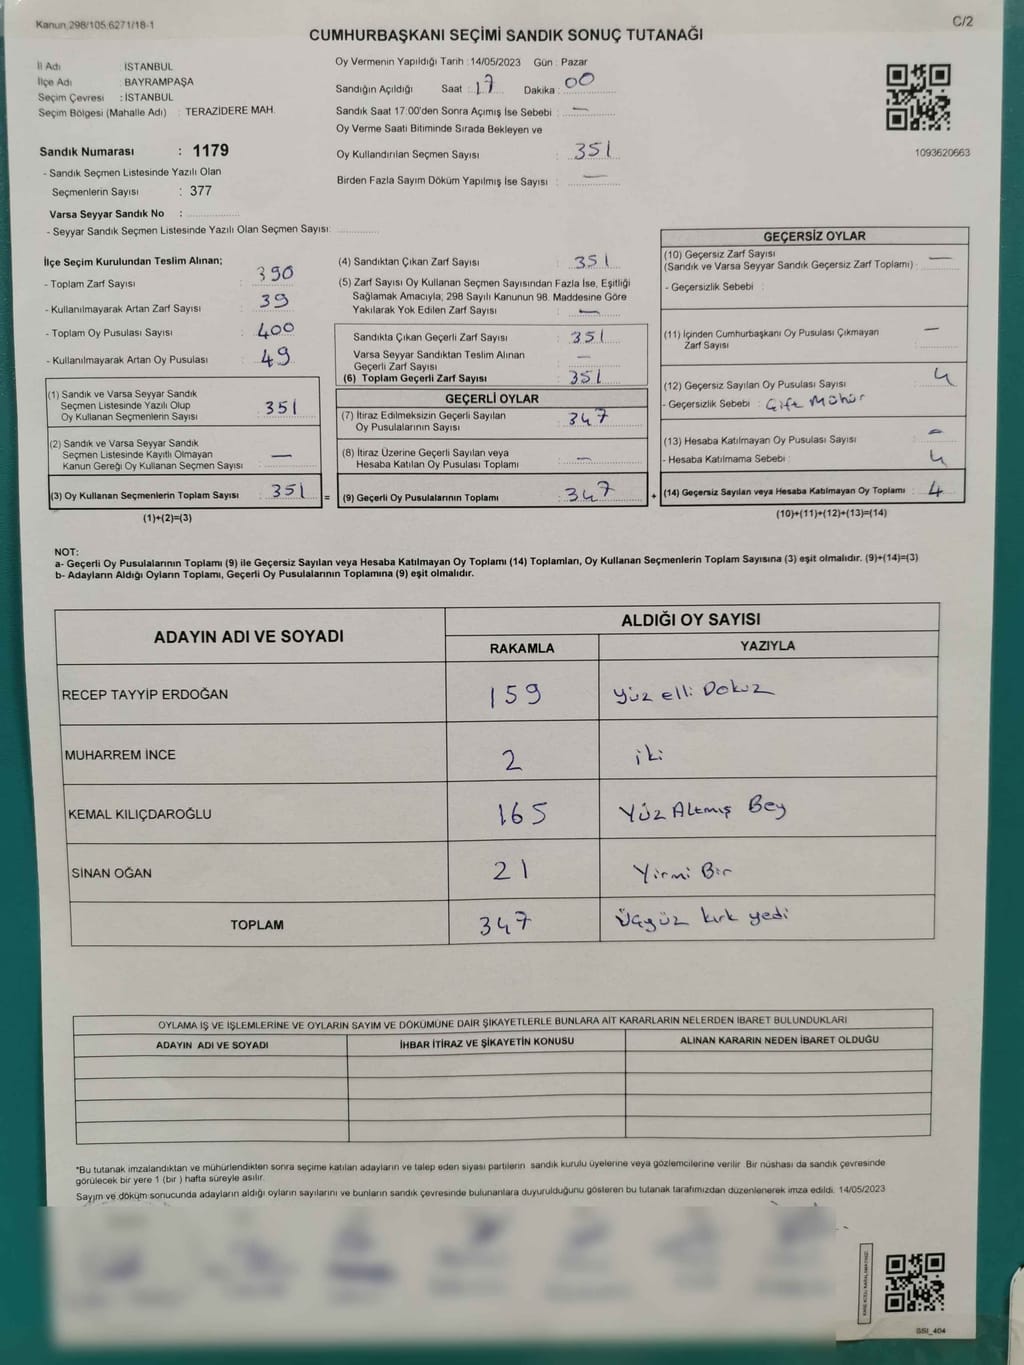 Kanun 298/105,6271/18-1
C/2
CUMHURBAŞKANI SEÇİMİ SANDIK SONUÇ TUTANAĞI
İl Adı : İSTANBUL
İlçe Adı : BAYRAMPAŞA
Seçim Çevresi : İSTANBUL
Seçim Bölgesi (Mahalle Adı) : TERAZİDERE MAH.
Sandık Numarası : 1179
- Sandık Seçmen Listesinde Yazılı Olan
Seçmenlerin Sayısı : 377
Varsa Seyyar Sandık No :
- Seyyar Sandık Seçmen Listesinde Yazılı Olan Seçmen Sayısı:
Oy Vermenin Yapıldığı Tarih : 14/05/2023 Gün : Pazar
Sandığın Açıldığı Saat : 17 Dakika : 00
Sandık Saat 17:00'den Sonra Açımış İse Sebebi : —
Oy Verme Saati Bitiminde Sırada Bekleyen ve
Oy Kullandırılan Seçmen Sayısı : 351
Birden Fazla Sayım Döküm Yapılmış İse Sayısı : —
1093620663
İlçe Seçim Kurulundan Teslim Alınan;
- Toplam Zarf Sayısı : 390
- Kullanılmayarak Artan Zarf Sayısı : 39
- Toplam Oy Pusulası Sayısı : 400
- Kullanılmayarak Artan Oy Pusulası : 49
(1) Sandık ve Varsa Seyyar Sandık
Seçmen Listesinde Yazılı Olup
Oy Kullanan Seçmenlerin Sayısı : 351
(2) Sandık ve Varsa Seyyar Sandık
Seçmen Listesinde Kayıtlı Olmayan
Kanun Gereği Oy Kullanan Seçmen Sayısı : —
(3) Oy Kullanan Seçmenlerin Toplam Sayısı : 351 =
(1)+(2)=(3)
(4) Sandıktan Çıkan Zarf Sayısı : 351
(5) Zarf Sayısı Oy Kullanan Seçmen Sayısından Fazla İse, Eşitliği
Sağlamak Amacıyla; 298 Sayılı Kanunun 98. Maddesine Göre
Yakılarak Yok Edilen Zarf Sayısı : —
Sandıkta Çıkan Geçerli Zarf Sayısı : 351
Varsa Seyyar Sandıktan Teslim Alınan
Geçerli Zarf Sayısı : —
(6) Toplam Geçerli Zarf Sayısı : 351
GEÇERLİ OYLAR
(7) İtiraz Edilmeksizin Geçerli Sayılan
Oy Pusulalarının Sayısı : 347
(8) İtiraz Üzerine Geçerli Sayılan veya
Hesaba Katılan Oy Pusulası Toplamı : —
(9) Geçerli Oy Pusulalarının Toplamı : 347 +
GEÇERSİZ OYLAR
(10) Geçersiz Zarf Sayısı
(Sandık ve Varsa Seyyar Sandık Geçersiz Zarf Toplamı) : —
- Geçersizlik Sebebi :
(11) İçinden Cumhurbaşkanı Oy Pusulası Çıkmayan
Zarf Sayısı : —
(12) Geçersiz Sayılan Oy Pusulası Sayısı : 4
- Geçersizlik Sebebi : Çift Mühür
(13) Hesaba Katılmayan Oy Pusulası Sayısı : —
- Hesaba Katılmama Sebebi : 4
(14) Geçersiz Sayılan veya Hesaba Katılmayan Oy Toplamı : 4
(10)+(11)+(12)+(13)=(14)
NOT:
a- Geçerli Oy Pusulalarının Toplamı (9) ile Geçersiz Sayılan veya Hesaba Katılmayan Oy Toplamı (14) Toplamları, Oy Kullanan Seçmenlerin Toplam Sayısına (3) eşit olmalıdır. (9)+(14)=(3)
b- Adayların Aldığı Oyların Toplamı, Geçerli Oy Pusulalarının Toplamına (9) eşit olmalıdır.
ADAYIN ADI VE SOYADI ALDIĞI OY SAYISI
RAKAMLA YAZIYLA
RECEP TAYYİP ERDOĞAN 159 Yüz elli Dokuz
MUHARREM İNCE 2 iki
KEMAL KILIÇDAROĞLU 165 Yüz Altmış Beş
SİNAN OĞAN 21 Yirmi Bir
TOPLAM 347 Üçyüz kırk yedi
OYLAMA İŞ VE İŞLEMLERİNE VE OYLARIN SAYIM VE DÖKÜMÜNE DAİR ŞİKAYETLERLE BUNLARA AİT KARARLARIN NELERDEN İBARET BULUNDUKLARI
ADAYIN ADI VE SOYADI İHBAR İTİRAZ VE ŞİKAYETİN KONUSU ALINAN KARARIN NEDEN İBARET OLDUĞU
*Bu tutanak imzalandıktan ve mühürlendikten sonra seçime katılan adayların ve talep eden siyasi partilerin sandık kurulu üyelerine veya gözlemcilerine verilir. Bir nüshası da sandık çevresinde
görülecek bir yere 1 (bir ) hafta süreyle asılır.
Sayım ve döküm sonucunda adayların aldığı oyların sayılarını ve bunların sandık çevresinde bulunanlara duyurulduğunu gösteren bu tutanak tarafımızdan düzenlenerek imza edildi. 14/05/2023
SSI_404